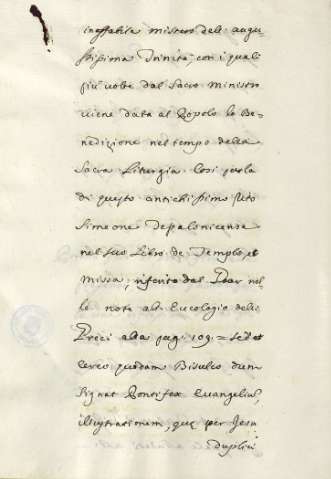 ineffabile mistero dell: augu
stissima Trinità; con i quali
più volte dal Sacro Ministro
viene data al Popolo la Be=
nedizione nel tempo della
Sacra Liturgia. Così parla
di questo antichissimo rito
Simeone
nel suo Libro de Templo, et
Missa, riferito dal Goar nel
le note all: Eucologio delli
Greci alla pag: 109 = Sed et
Cereo quodam Bisulco dum
Signat Pontifex Evangelium,
illustrationem, quæ per Jesu
Duplici